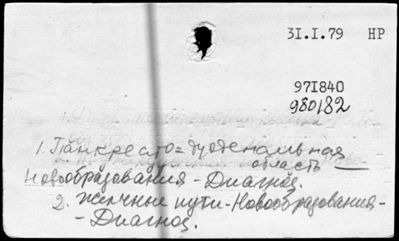 31.I.79 НР
971840
980182
1. Панкреато=дуоденальная
область —
Новообразования - Диагноз.
2. Желчные пути - Новообразования -
- Диагноз.